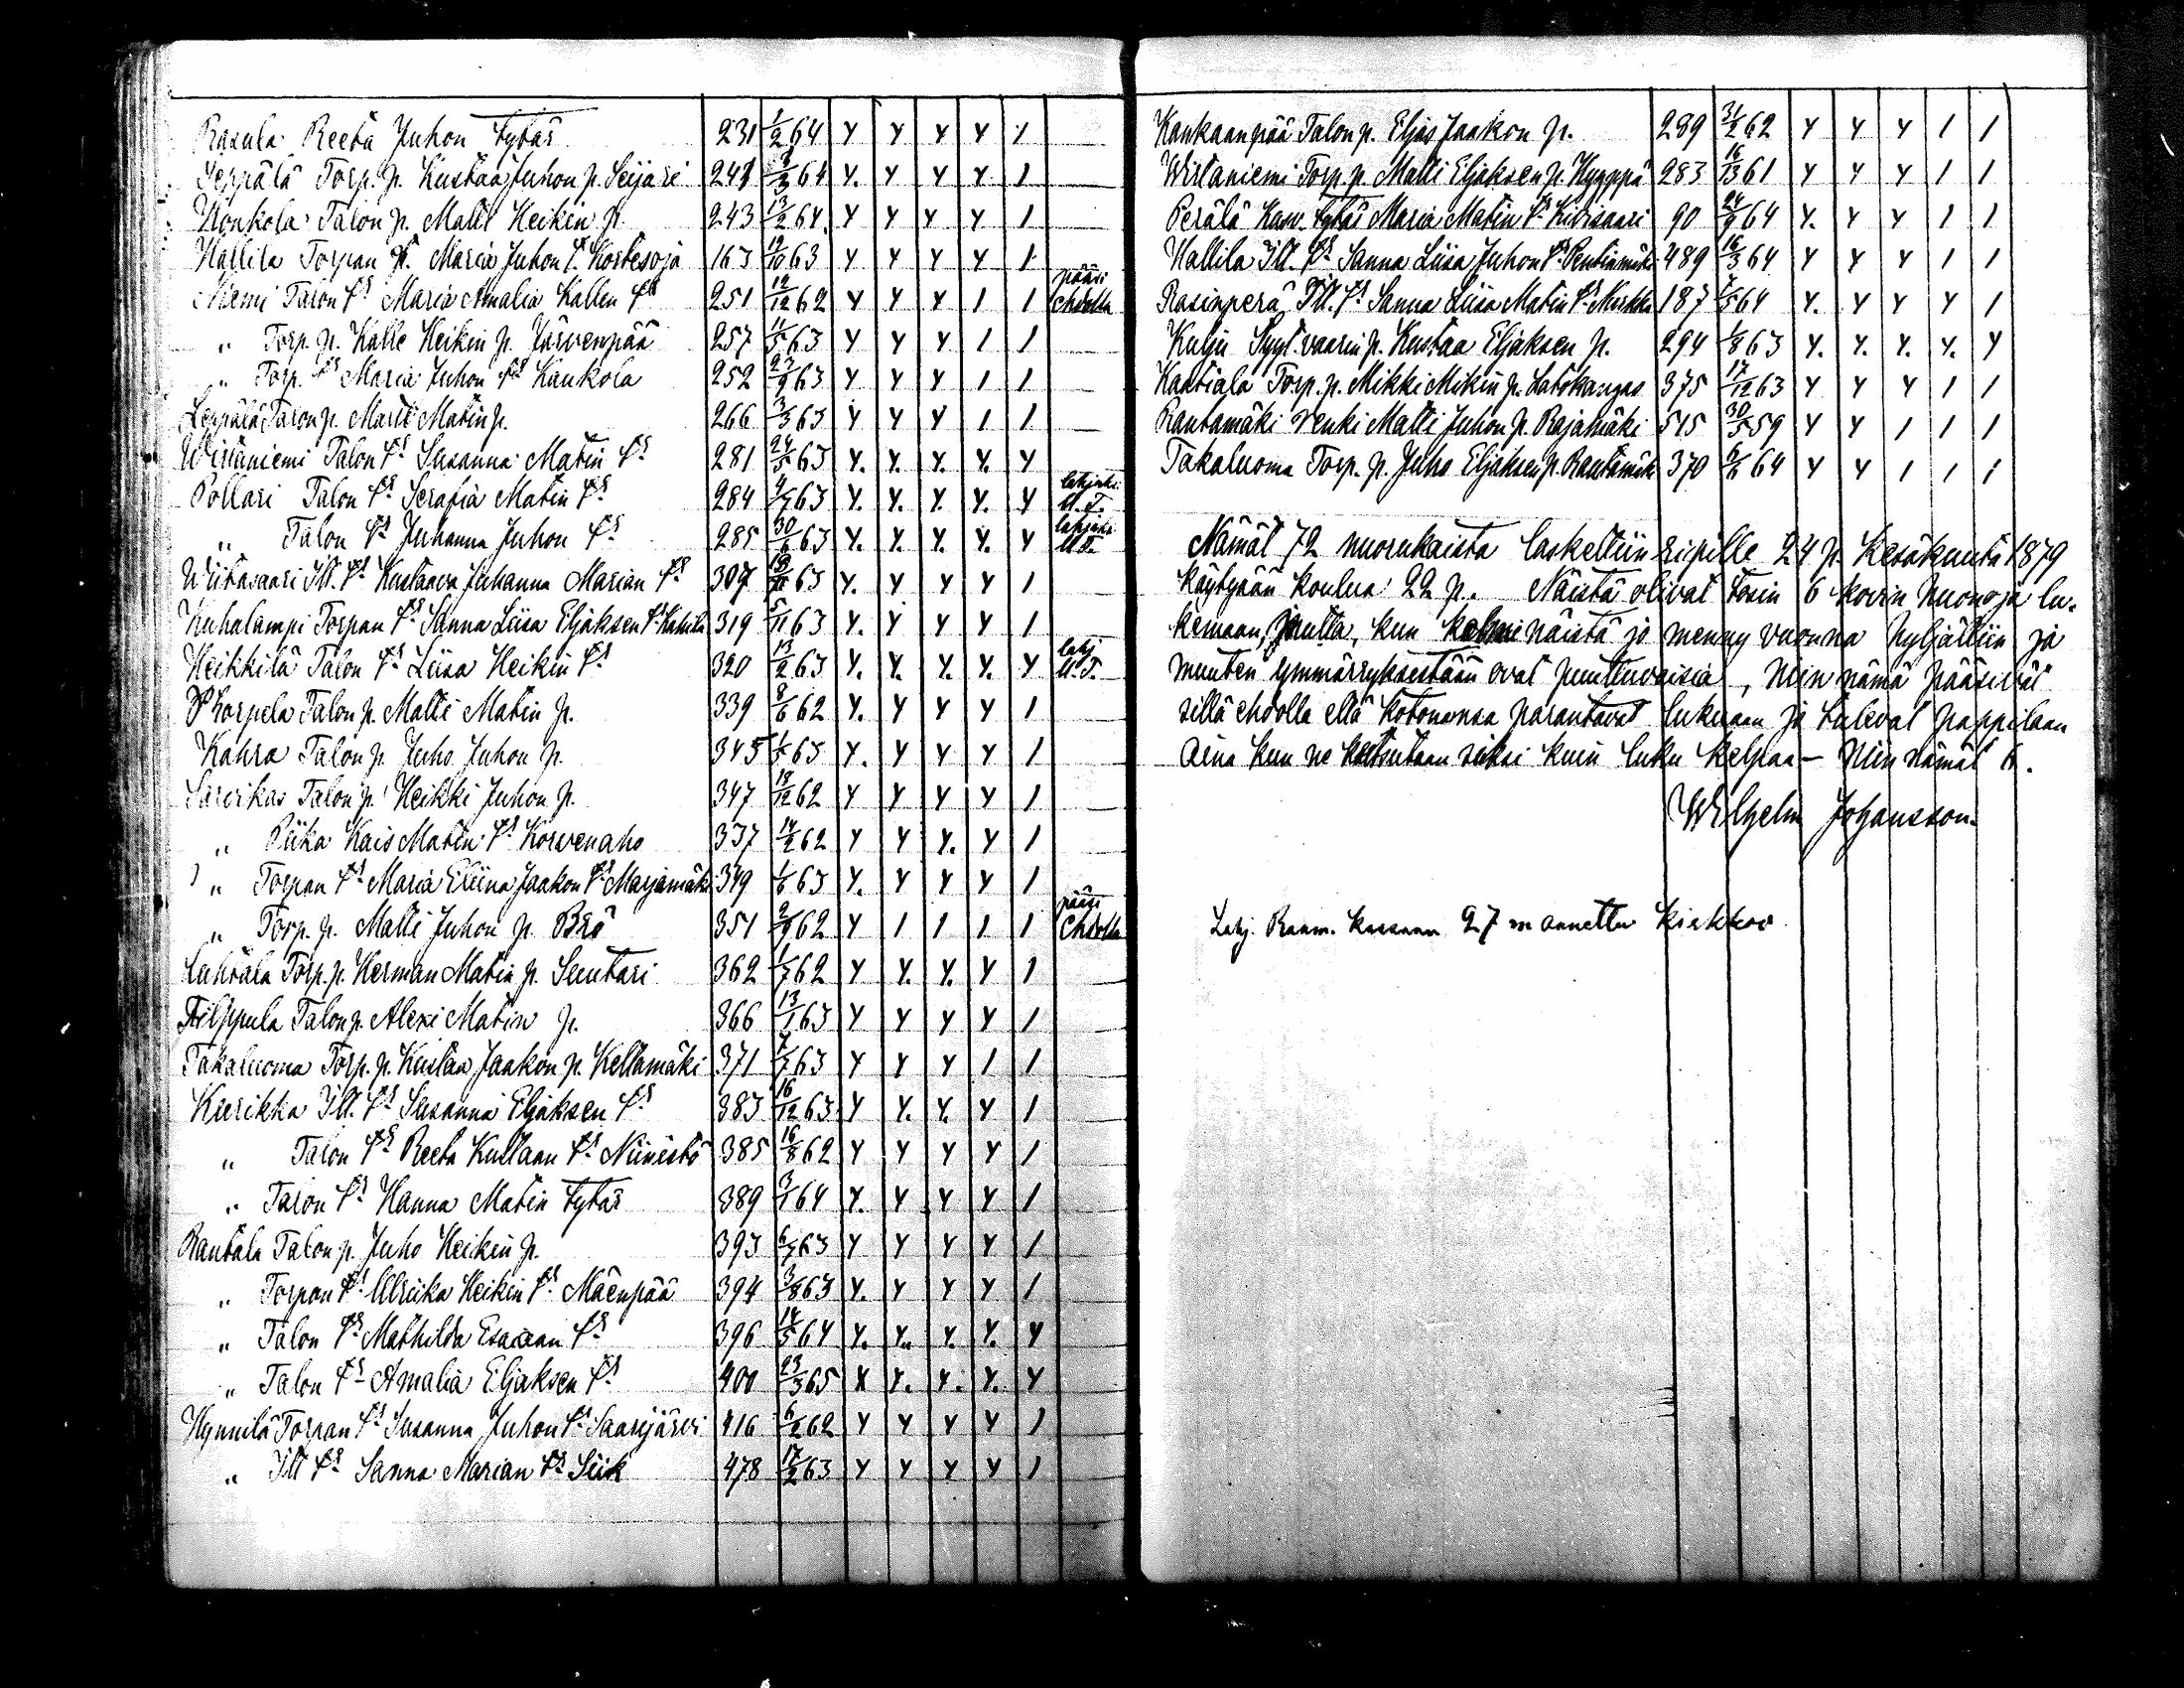 Rasula Reeta Juhon tytär 231 1/2 64 Y Y Y Y 1 —
Seppälä Torp. p. Kustaa Juhon p. Seijari 241 3/3 64 Y. Y Y Y 1 —
Nonkola Talon p. Matti Heikin p. 243 13/2 64 Y Y Y Y 1 —
Hallila Torpan Maria Juhon t. Kortesoja 163 12/10 63 Y Y Y Y 1
Niemi Talon tr Maria Amalia Kallen tr 251 12/12 62 Y Y Y 1 1 pääsi ehdolla
„ Torp. p. Kalle Heikin p. Järvenpää 257 11/5 63 Y Y Y 1 1 —
„ Torp. tr Maria Juhon tr Kankola 252 23/9 63 Y Y Y 1 1 —
Leppälä Talon p. Matti Matin p. 266 3/3 63 Y Y Y 1 1 —
Wirtaniemi Talon tr Susanna Matin tr 281 24/5 63 Y. Y. Y. Y. Y
Pollari Talon tr Serafia Matin tr 284 4/7 63 Y. Y. Y. Y. Y lahjaksi U. T.
„ Talon tr Juhanna Juhon tr 285 30/6 63 Y. Y. Y. Y. Y lahjaksi U. T.
Wiitasaari Itt. tr Kustaava Juhanna Marian tr 307 63 Y. Y Y Y 1
Kuhalampi Torpan tr Sanna Liisa Eljaksen tr 319 5/11 63 Y. Y Y Y 1
Heikkilä Talon tr Liisa Heikin tr 320 13/2 63 Y. Y. Y. Y. Y lahj U. T.
Korpela Talon p. Matti Matin p. 339 8/6 62 Y. Y Y Y 1
Kahra Talon p. Juho Juhon p. 345 1/5 63 Y. Y Y Y 1
Sarvikas Talon p. Heikki Juhon p. 347 18/12 62 Y Y Y Y 1
„ Piika Kais Matin tr Korvenaho 337 14/2 62 Y Y Y. Y 1
„ Torpan tr Maria Eliina Jaakon tr Marjamäki 349 1/6 63 Y. Y Y Y 1
„ Torp. p. Matti Juhon p. Brö 351 2/9 62 Y 1 1 1 1 pääsi Ehdolla
Luhtala Torp. p. Herman Matin p. Suutari 362 1/7 62 Y Y. Y. Y 1
Filppula Talon p. Alexi Matin p. 366 13/1 63 Y Y Y Y 1
Takaluoma Torp. p. Kustaa Jaakon p. Keltamäki 371 7/7 63 Y Y Y 1 1
Kurikka Itt. tr Susanna Eljaksen tr 383 16/12 63 Y Y. Y. Y 1
„ Talon tr Reeta Kustaan tr Niinistö 385 16/8 62 Y Y Y Y 1
„ Talon tr Hanna Matin tytär 389 3/1 64 Y. Y Y Y 1
Rantala Talon p. Juho Heikin p. 393 6/7 63 Y Y Y Y 1
„ Torpan tr Ulriika Heikin tr Mäenpää 394 3/8 63 Y. Y Y Y 1
„ Talon tr Mathilda Esaiaan tr 396 14/5 64 Y. Y. Y. Y. Y
„ Talon tr Amalia Eljaksen tr 400 23/3 65 Y Y. Y. Y. Y
Hynnilä Torpan tr Susanna Juhon tr Saarijärvi 416 6/2 62 Y Y Y Y 1
„ Itt tr Sanna Marian tr Siik 478 17/2 63 Y Y Y Y 1
Kankaanpää Talon p. Eljas Jaakon p. 289 62 Y Y Y 1 1
Wirtaniemi Torp. p. Matti Eljaksen p. Hyyppä 283 61 Y Y Y 1 1
Perälä Kauv. tytär Maria Matin tr Kivisaari 90 24/9 64 Y. Y Y 1 1
Hallila Itt. tr Sanna Liisa Juhon tr Pentinmäki 489 16/3 64 Y Y Y 1 1
Rasinperä Itt. tr Sanna Liisa Matin tr 187 7/5 64 Y. Y Y Y 1
Kulju Syyt. vaarin p. Kustaa Eljaksen p. 294 1/8 63 Y. Y. Y. Y. Y
Kantiala Torp. p. Mikki Mikin p. Latokangas 375 17/12 63 Y Y Y 1 1
Rantamäki renki Matti Juhon p. Rajamäki 515 30/5 59 Y Y 1 1 1
Takaluoma Torp. p. Juho Eljaksen p. Rantamäki 370 64 Y Y 1 1 1
Nämät 72 nuorukaista laskettiin ripille 24 p. Kesäkuuta 1879
käytyään koulua 22 p. Näistä olivat tosin 6 kovin huonoja lu-
kemaan, mutta, kun kolme näistä jo menny vuonna hyljättiin ja
muuten ymmärryksestään ovat puuttuvaisia, niin nämä pääsivät
sillä ehdolla että kotonansa parantavat lukuaan ja tulevat pappilaan
aina kun ne kutsutaan siksi kuin luku kelpaa — Niin nämät 6.
Wilhelm Johansson.
Lahj. Raam. kassaan 27 m annettu kirkkoo